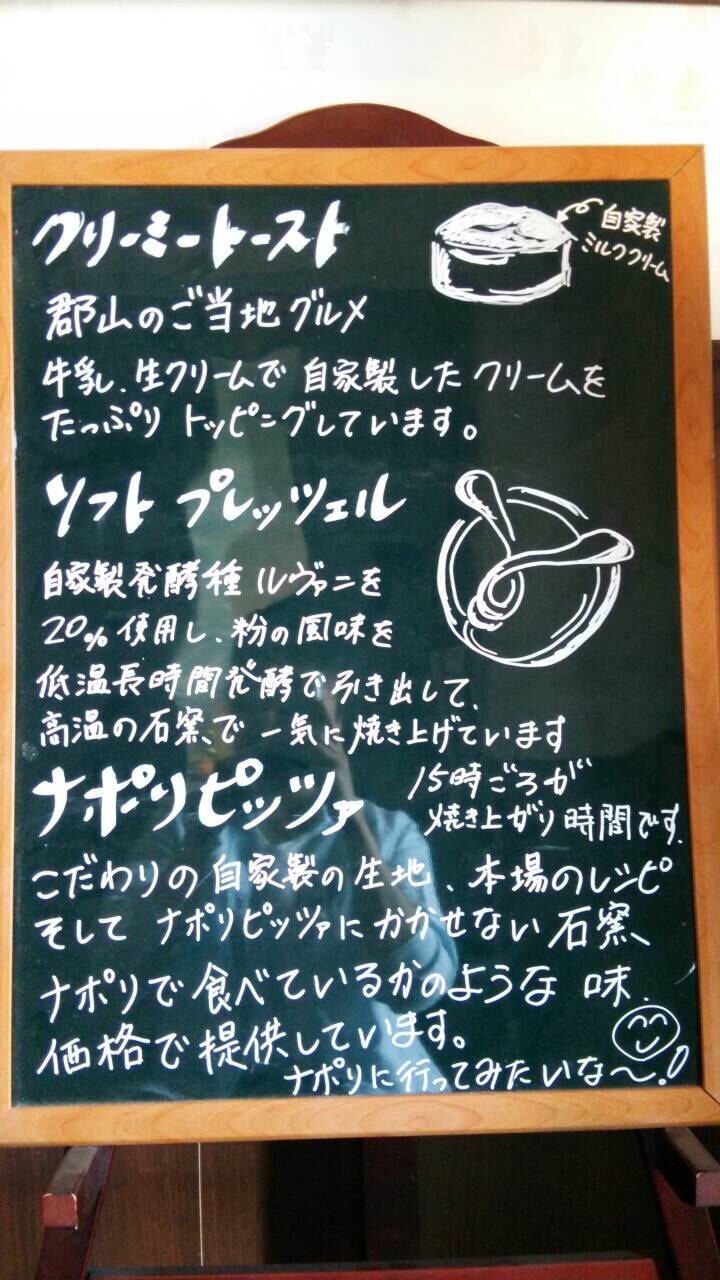 クリーミートースト
自家製
ミルククリーム
郡山のご当地グルメ
牛乳、生クリームで自家製したクリームを
たっぷりトッピングしています。
ソフトプレッツェル
自家製発酵種ルヴァンを
20%使用し、粉の風味を
低温長時間発酵で引き出して、
高温の石窯で一気に焼き上げています
15時ごろが
焼き上がり時間です。
ナポリピッツァ
こだわりの自家製の生地、本場のレシピ
そしてナポリピッツァにかかせない石窯、
ナポリで食べているかのような味、
価格で提供しています。
ナポリに行ってみたいな〜!